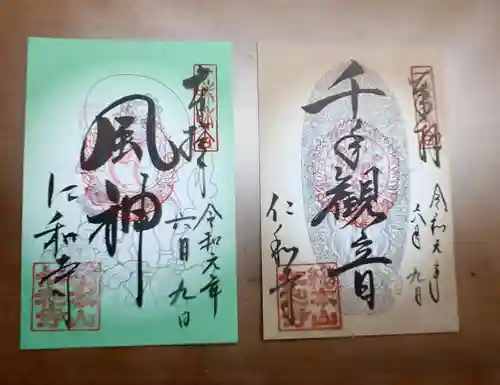 奉拝
風神
令和元年
六月九日
仁和寺
奉拝
千手観音
令和元年
六月九日
仁和寺